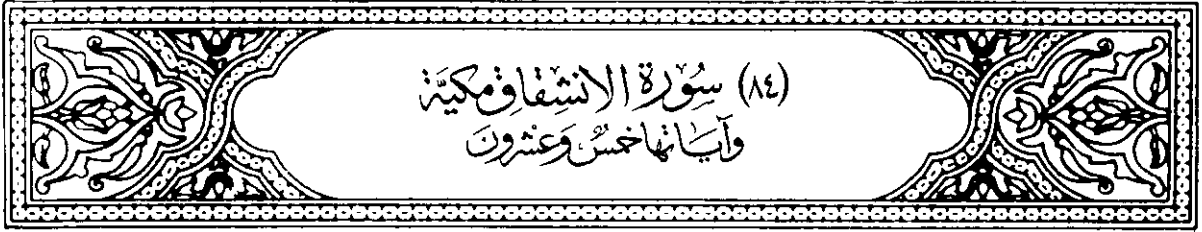 (٨٤) سُوْرَة الانشِقاقِ مَكيَّة
وَآيَاتهَا خمَسٌ وَعشْرُونَ